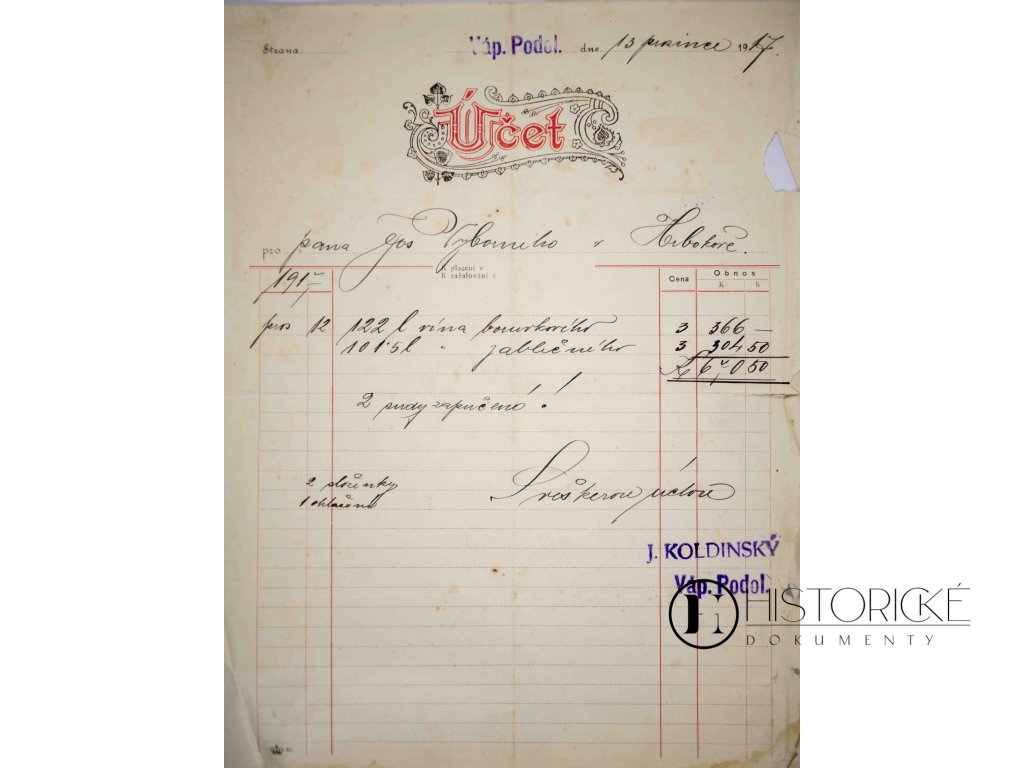 Strana Váp. Podol. dne 13 prosince 1917.
Účet
pro pana Jos Výborného v Hrbokově.
K placení v
K zažalování v
Cena Obnos
K h
191
pros 12 122 l vína borůvkového 3 366 —
101·5 l " jablečného 3 304 50
K 6 0 50
2 sudy zapůčeno!
2 složenky
S veškerou úctou
J. KOLDINSKÝ
Váp. Podol.
HISTORICKÉ
DOKUMENTY